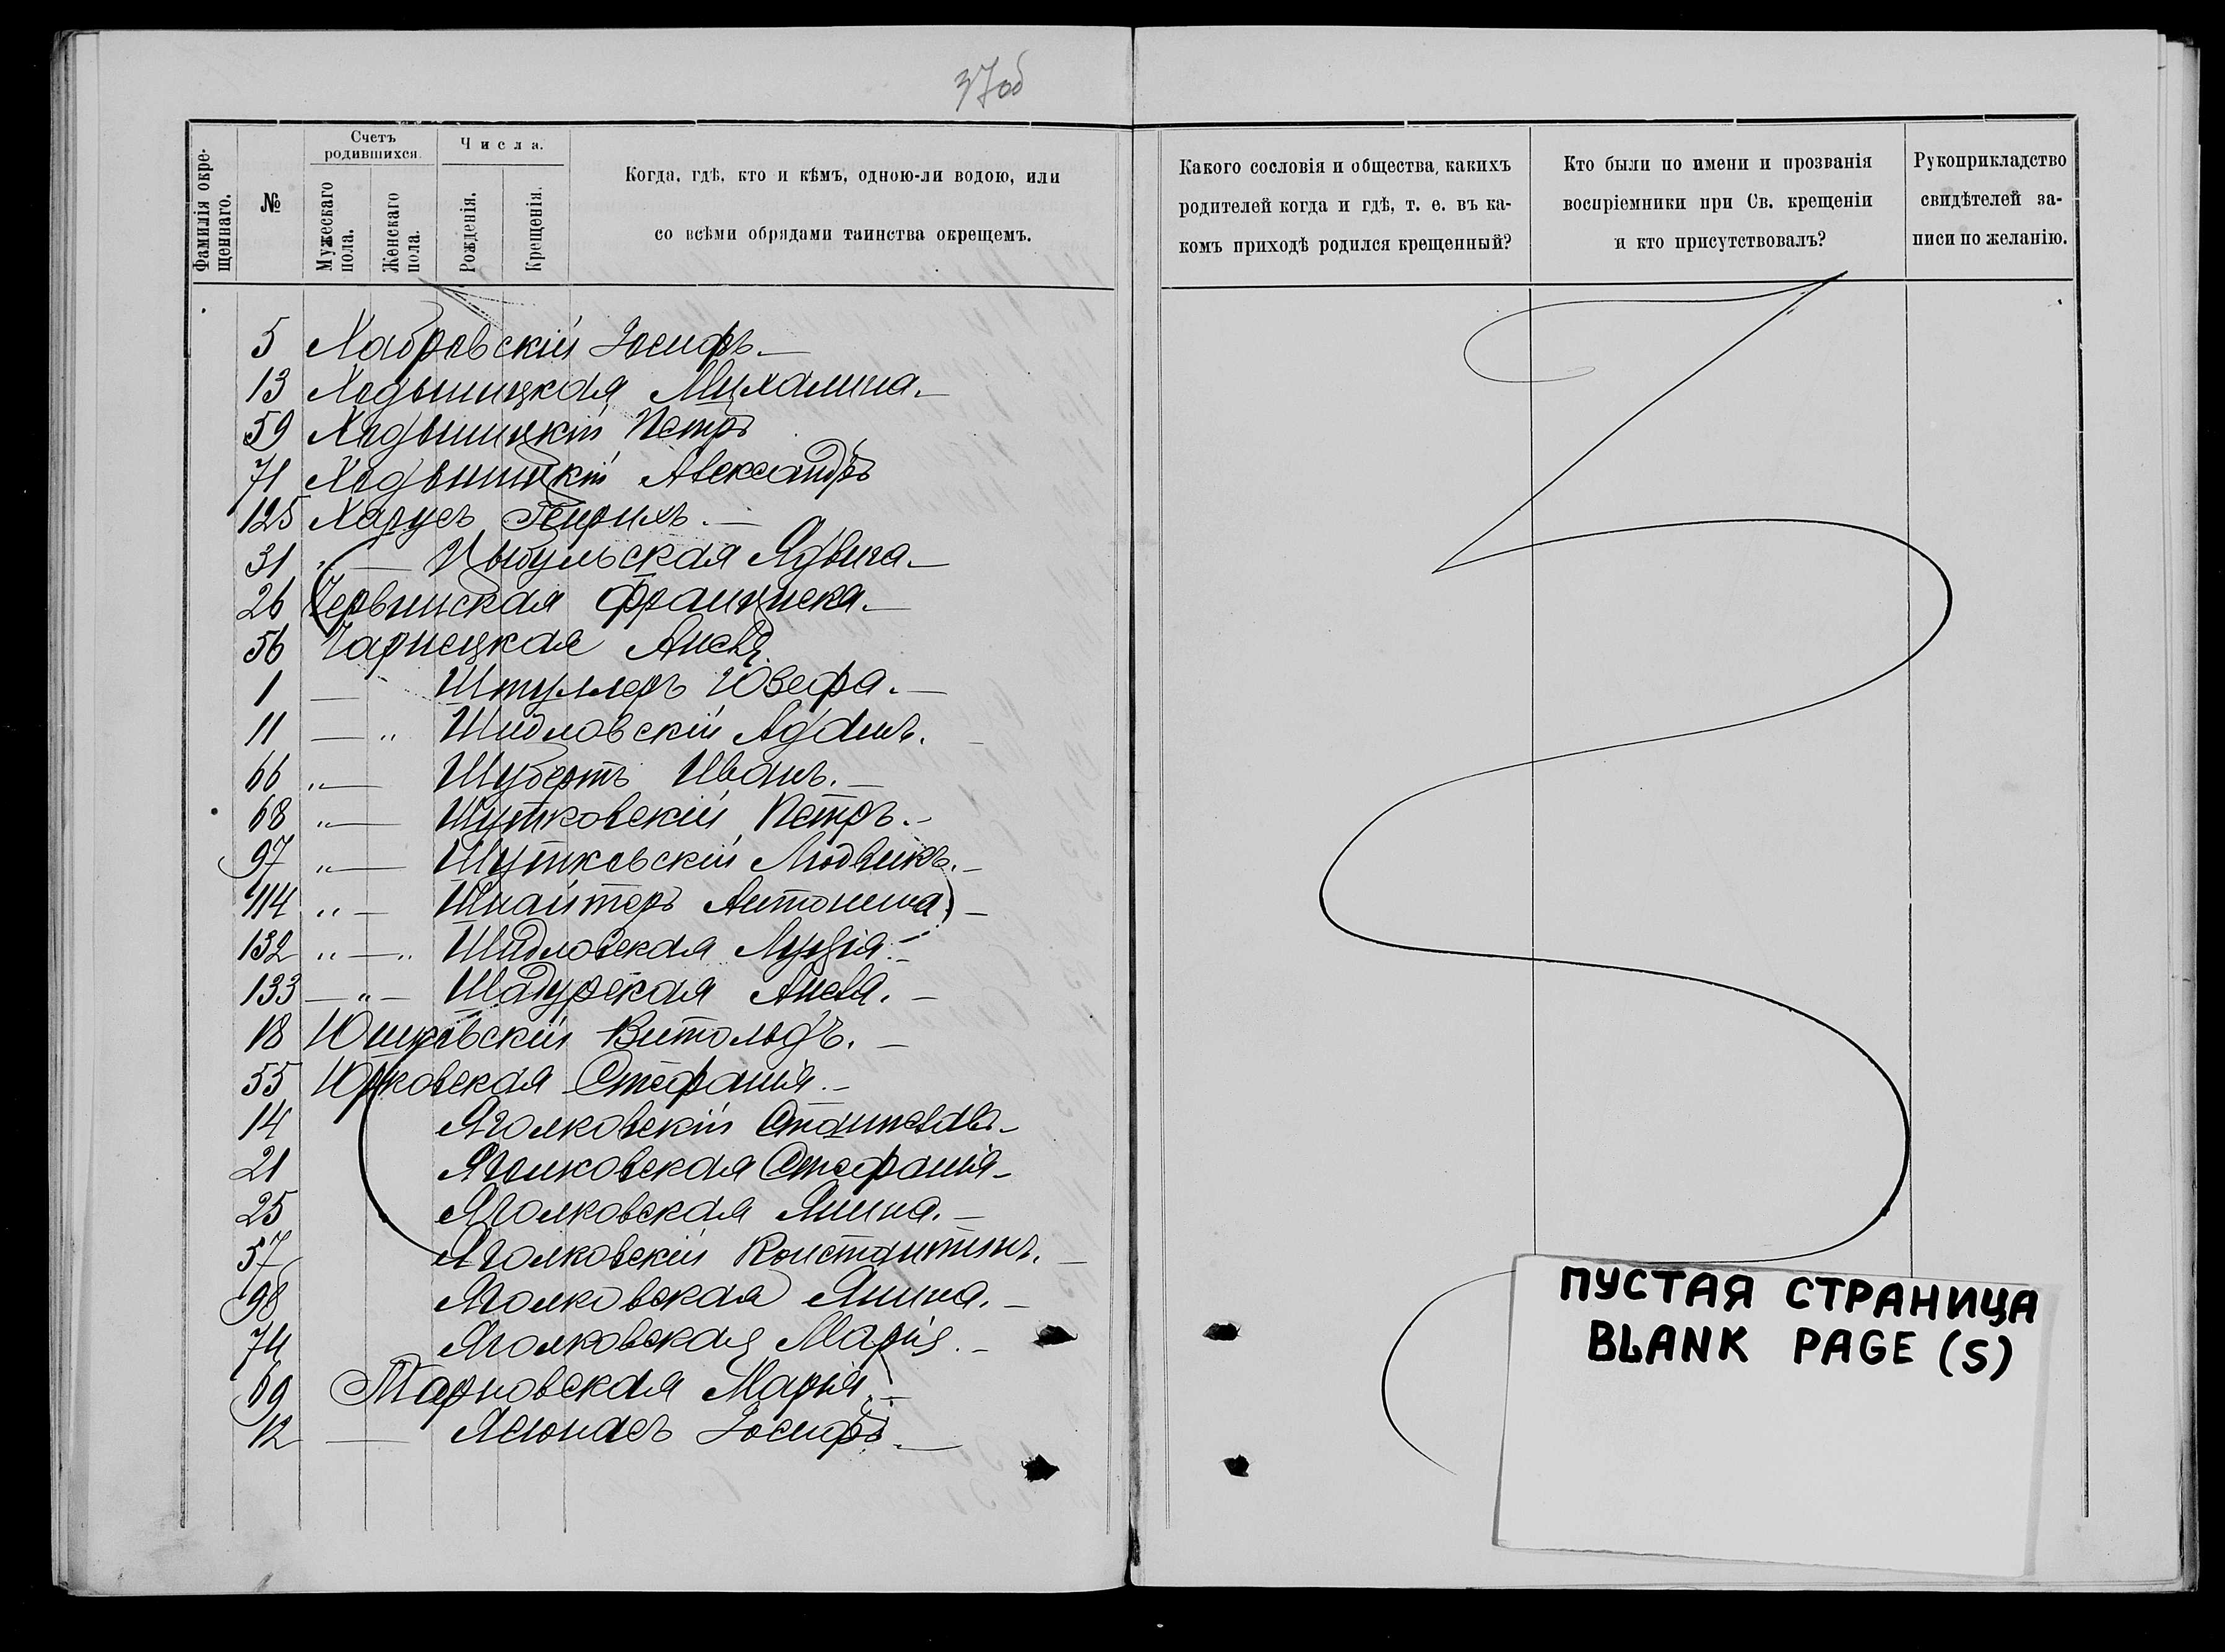 37об
Фамилія окре-
щеннаго.
№
Счетъ
родившихся.
Мужескаго
пола.
Женскаго
пола.
Числа.
Рожденія.
Крещенія.
Когда, гдѣ, кто и кѣмъ, одною-ли водою, или
со всѣми обрядами таинства окрещемъ.
Какого сословія и общества, какихъ
родителей когда и гдѣ, т. е. въ ка-
комъ приходѣ родился крещенный?
Кто были по имени и прозванія
воспріемники при Св. крещеніи
и кто присутствовалъ?
Рукоприкладство
свидѣтелей за-
писи по желанію.
5 Хабровскій Іосифъ.—
13 Ходыницкая Михалина.—
59 Ходыницкій Петръ
71 Ходыницкій Александръ
125 Харусъ Генрихъ.—
31 „ — Цыбульская Ядвига.—
26 Червинская Франциска.—
56 Чарнецкая Анеля
1 — Штуллеръ Юзефа.—
11 — „ Шидловскій Адамъ.—
66 „ — Шубертъ Иванъ.—
68 „ — Шутковскій Петръ.—
97 „ — Шутковскій Людвикъ.—
114 „ — Шнайтеръ Антонина.—
132 „ — „ Шидловская Луція.—
133 — „ — Шадурская Анеля.—
18 Юшковскій Витольдъ.—
55 Юрковская Стефанія.—
14 Яголковскій Станиславъ.—
21 Яголковская Стефанія—
25 Яголковская Янина.—
57 Яголковскій Константинъ.—
98 Яголковская Янина.—
74 Яголковская Марія.—
69 Тарновская Марія.—
12 — Ясюнасъ Іосифъ.—
ПУСТАЯ СТРАНИЦА
BLANK PAGE (S)